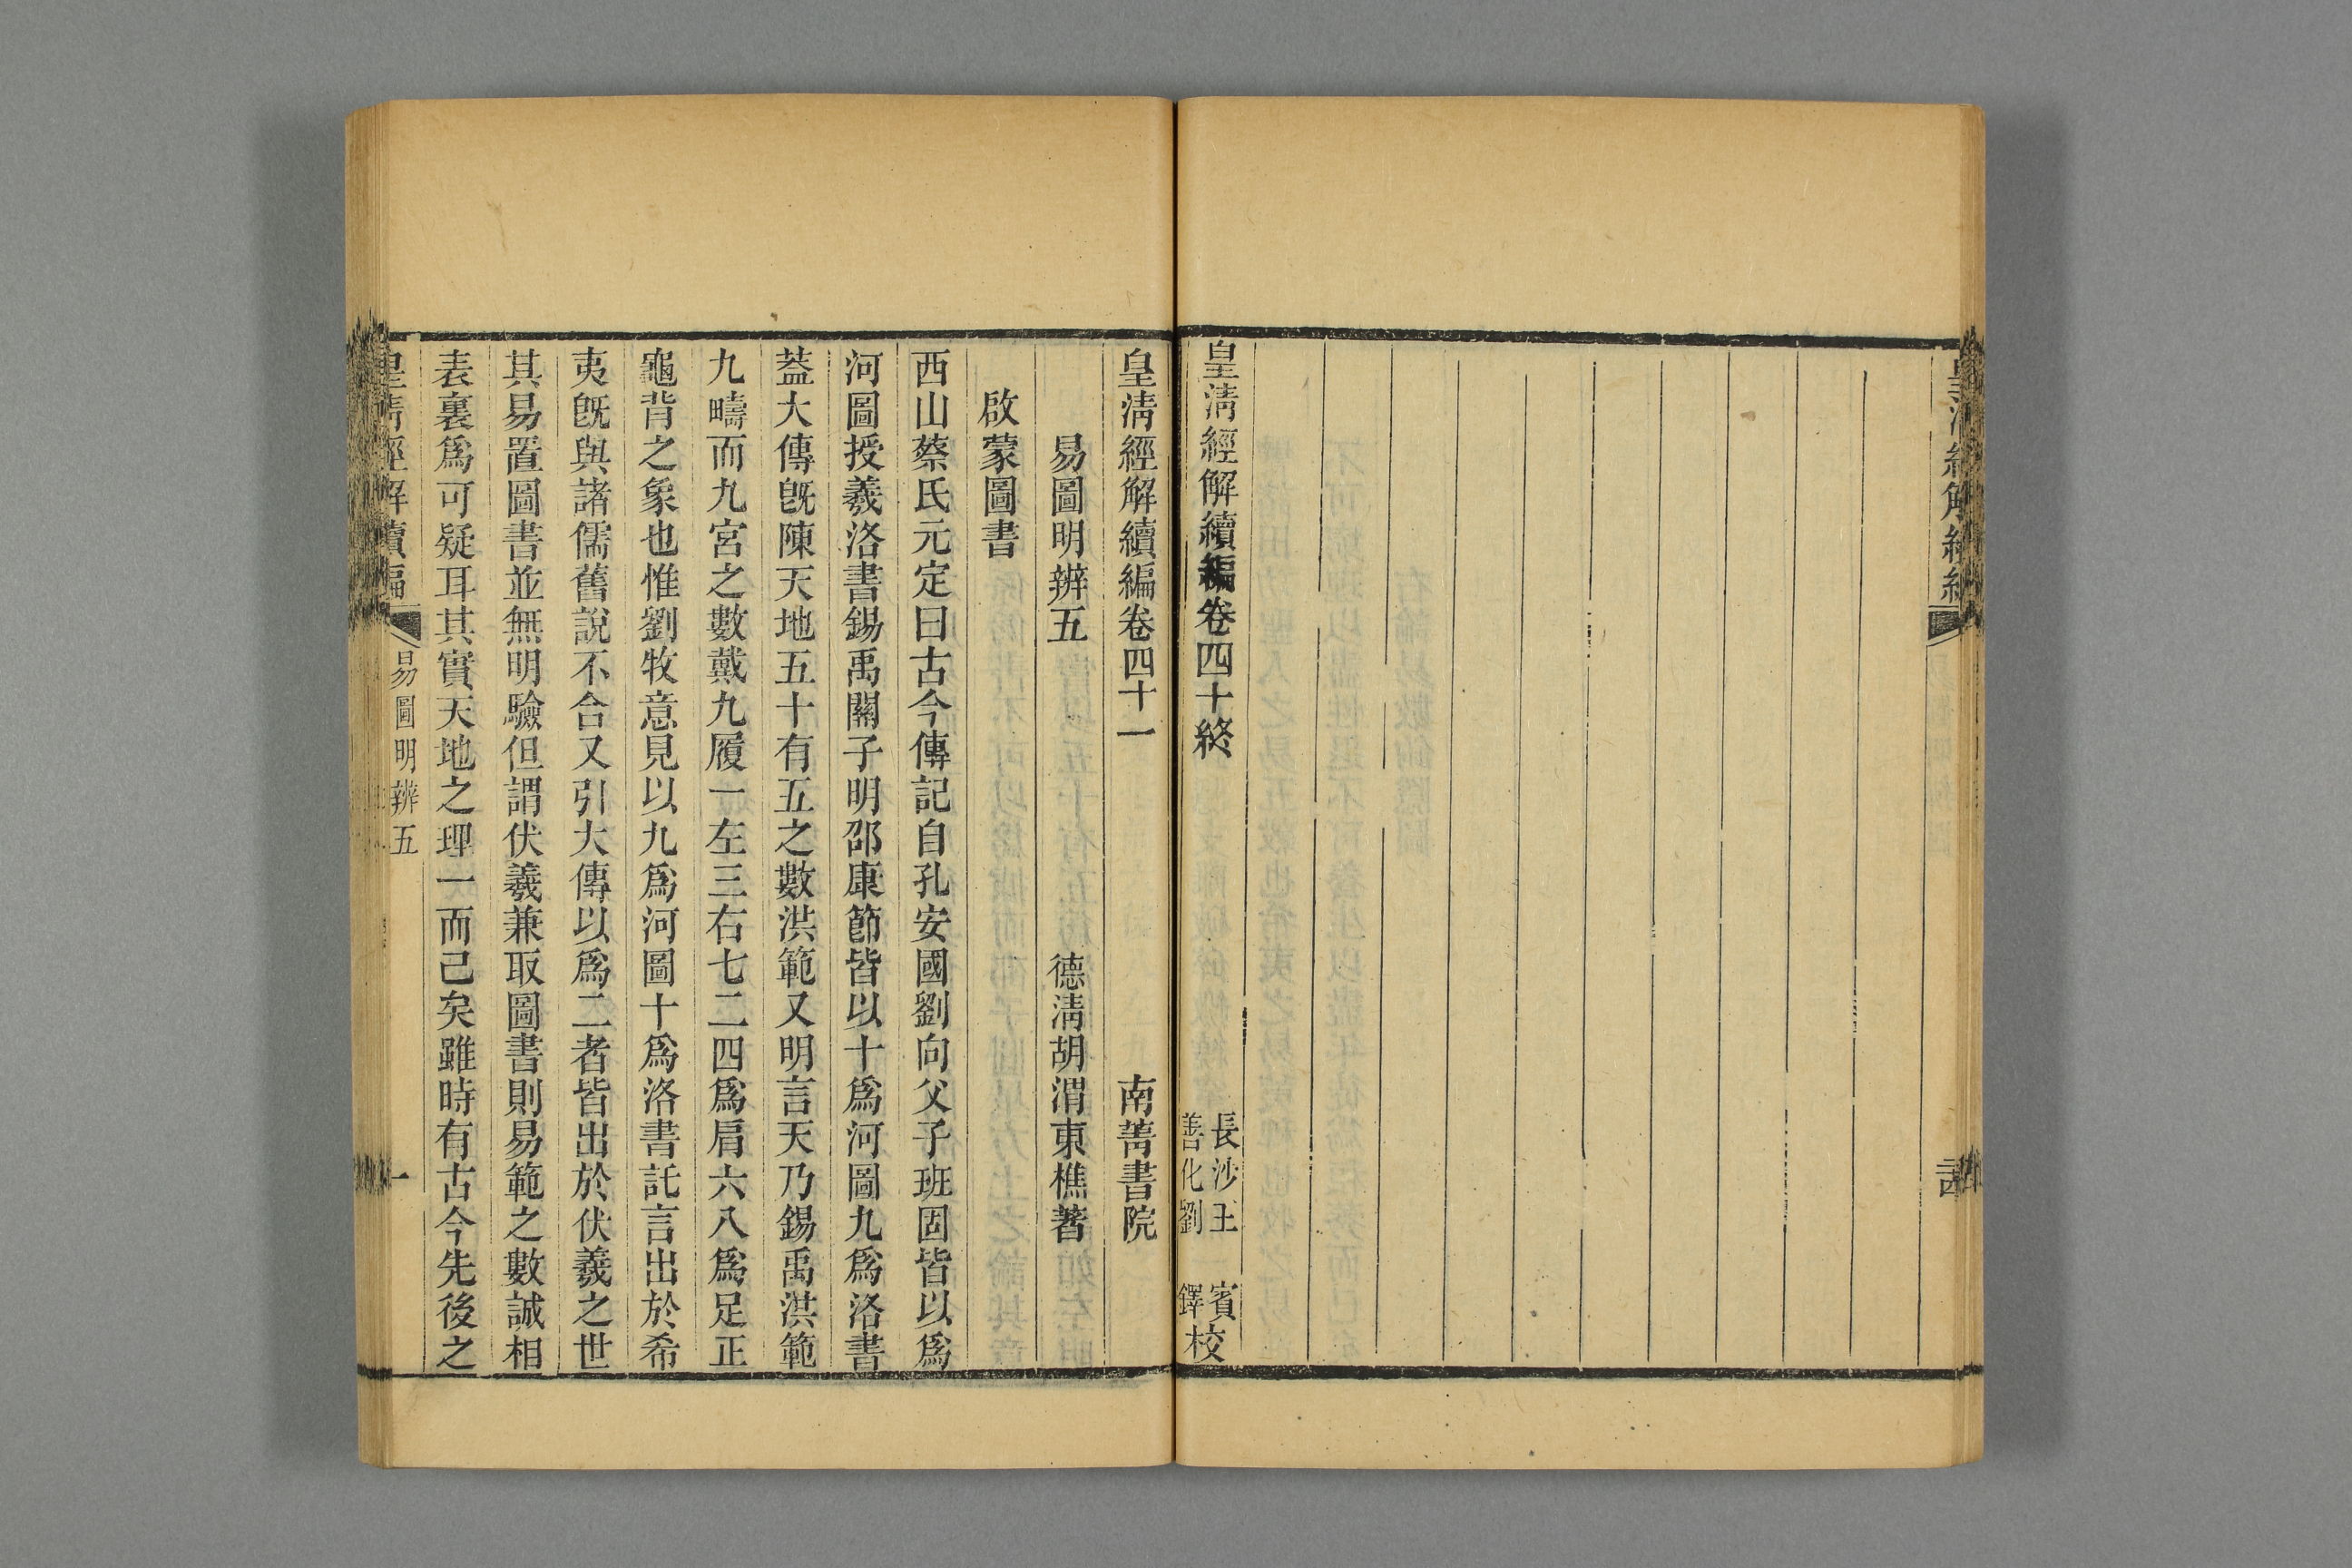 皇清經解續編卷四十終
長沙王 賓
善化劉 鐸校
皇清經解續編卷四十一 南菁書院
易圖明辨五 德清胡渭東樵著
啟蒙圖書
西山蔡氏元定曰古今傳記自孔安國劉向父子班固皆以爲
河圖授羲洛書錫禹關子明邵康節皆以十爲河圖九爲洛書
葢大傳旣陳天地五十有五之數洪範又明言天乃錫禹洪範
九疇而九宮之數戴九履一左三右七二四爲肩六八爲足正
龜背之象也惟劉牧意見以九爲河圖十爲洛書託言出於希
夷旣與諸儒舊說不合又引大傳以爲二者皆出於伏羲之世
其易置圖書並無明驗但謂伏羲兼取圖書則易範之數誠相
表裏爲可疑耳其實天地之理一而已矣雖時有古今先後之
皇清經解續編 易圖明辨五 一